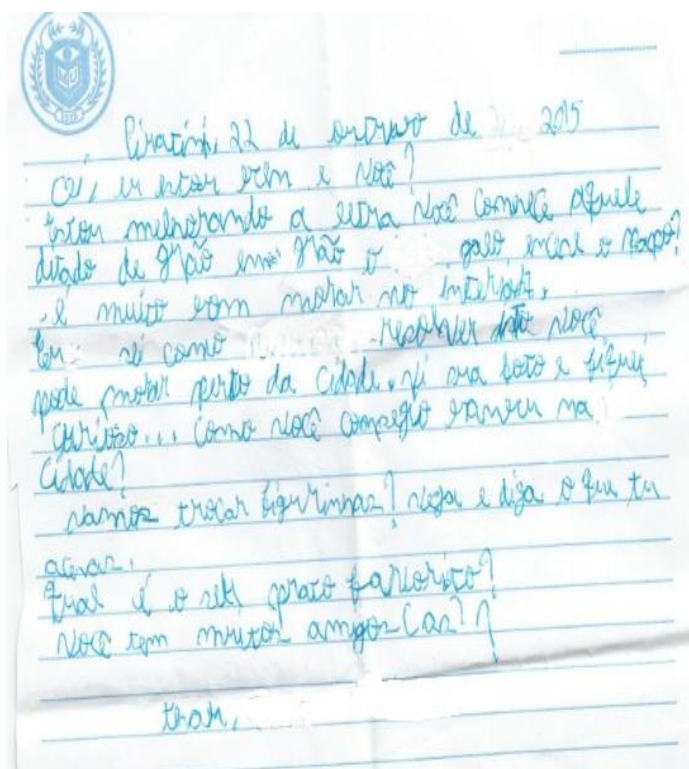 Piratini, 22 de outubro de 2015
Oi, eu estou bem e você?
Estou melhorando a letra você conhece aquele
ditado de grão em grão o galo enche o papo?
é muito bom morar no interior.
Eu sei como resolver isto você
pode morar perto da cidade. vi sua foto e fiquei
curioso... como você conseguiu na
cidade?
vamos trocar figurinhas? veja e diga o que tu
achar.
Qual é o seu prato favorito?
você tem muitos amigos(as)?